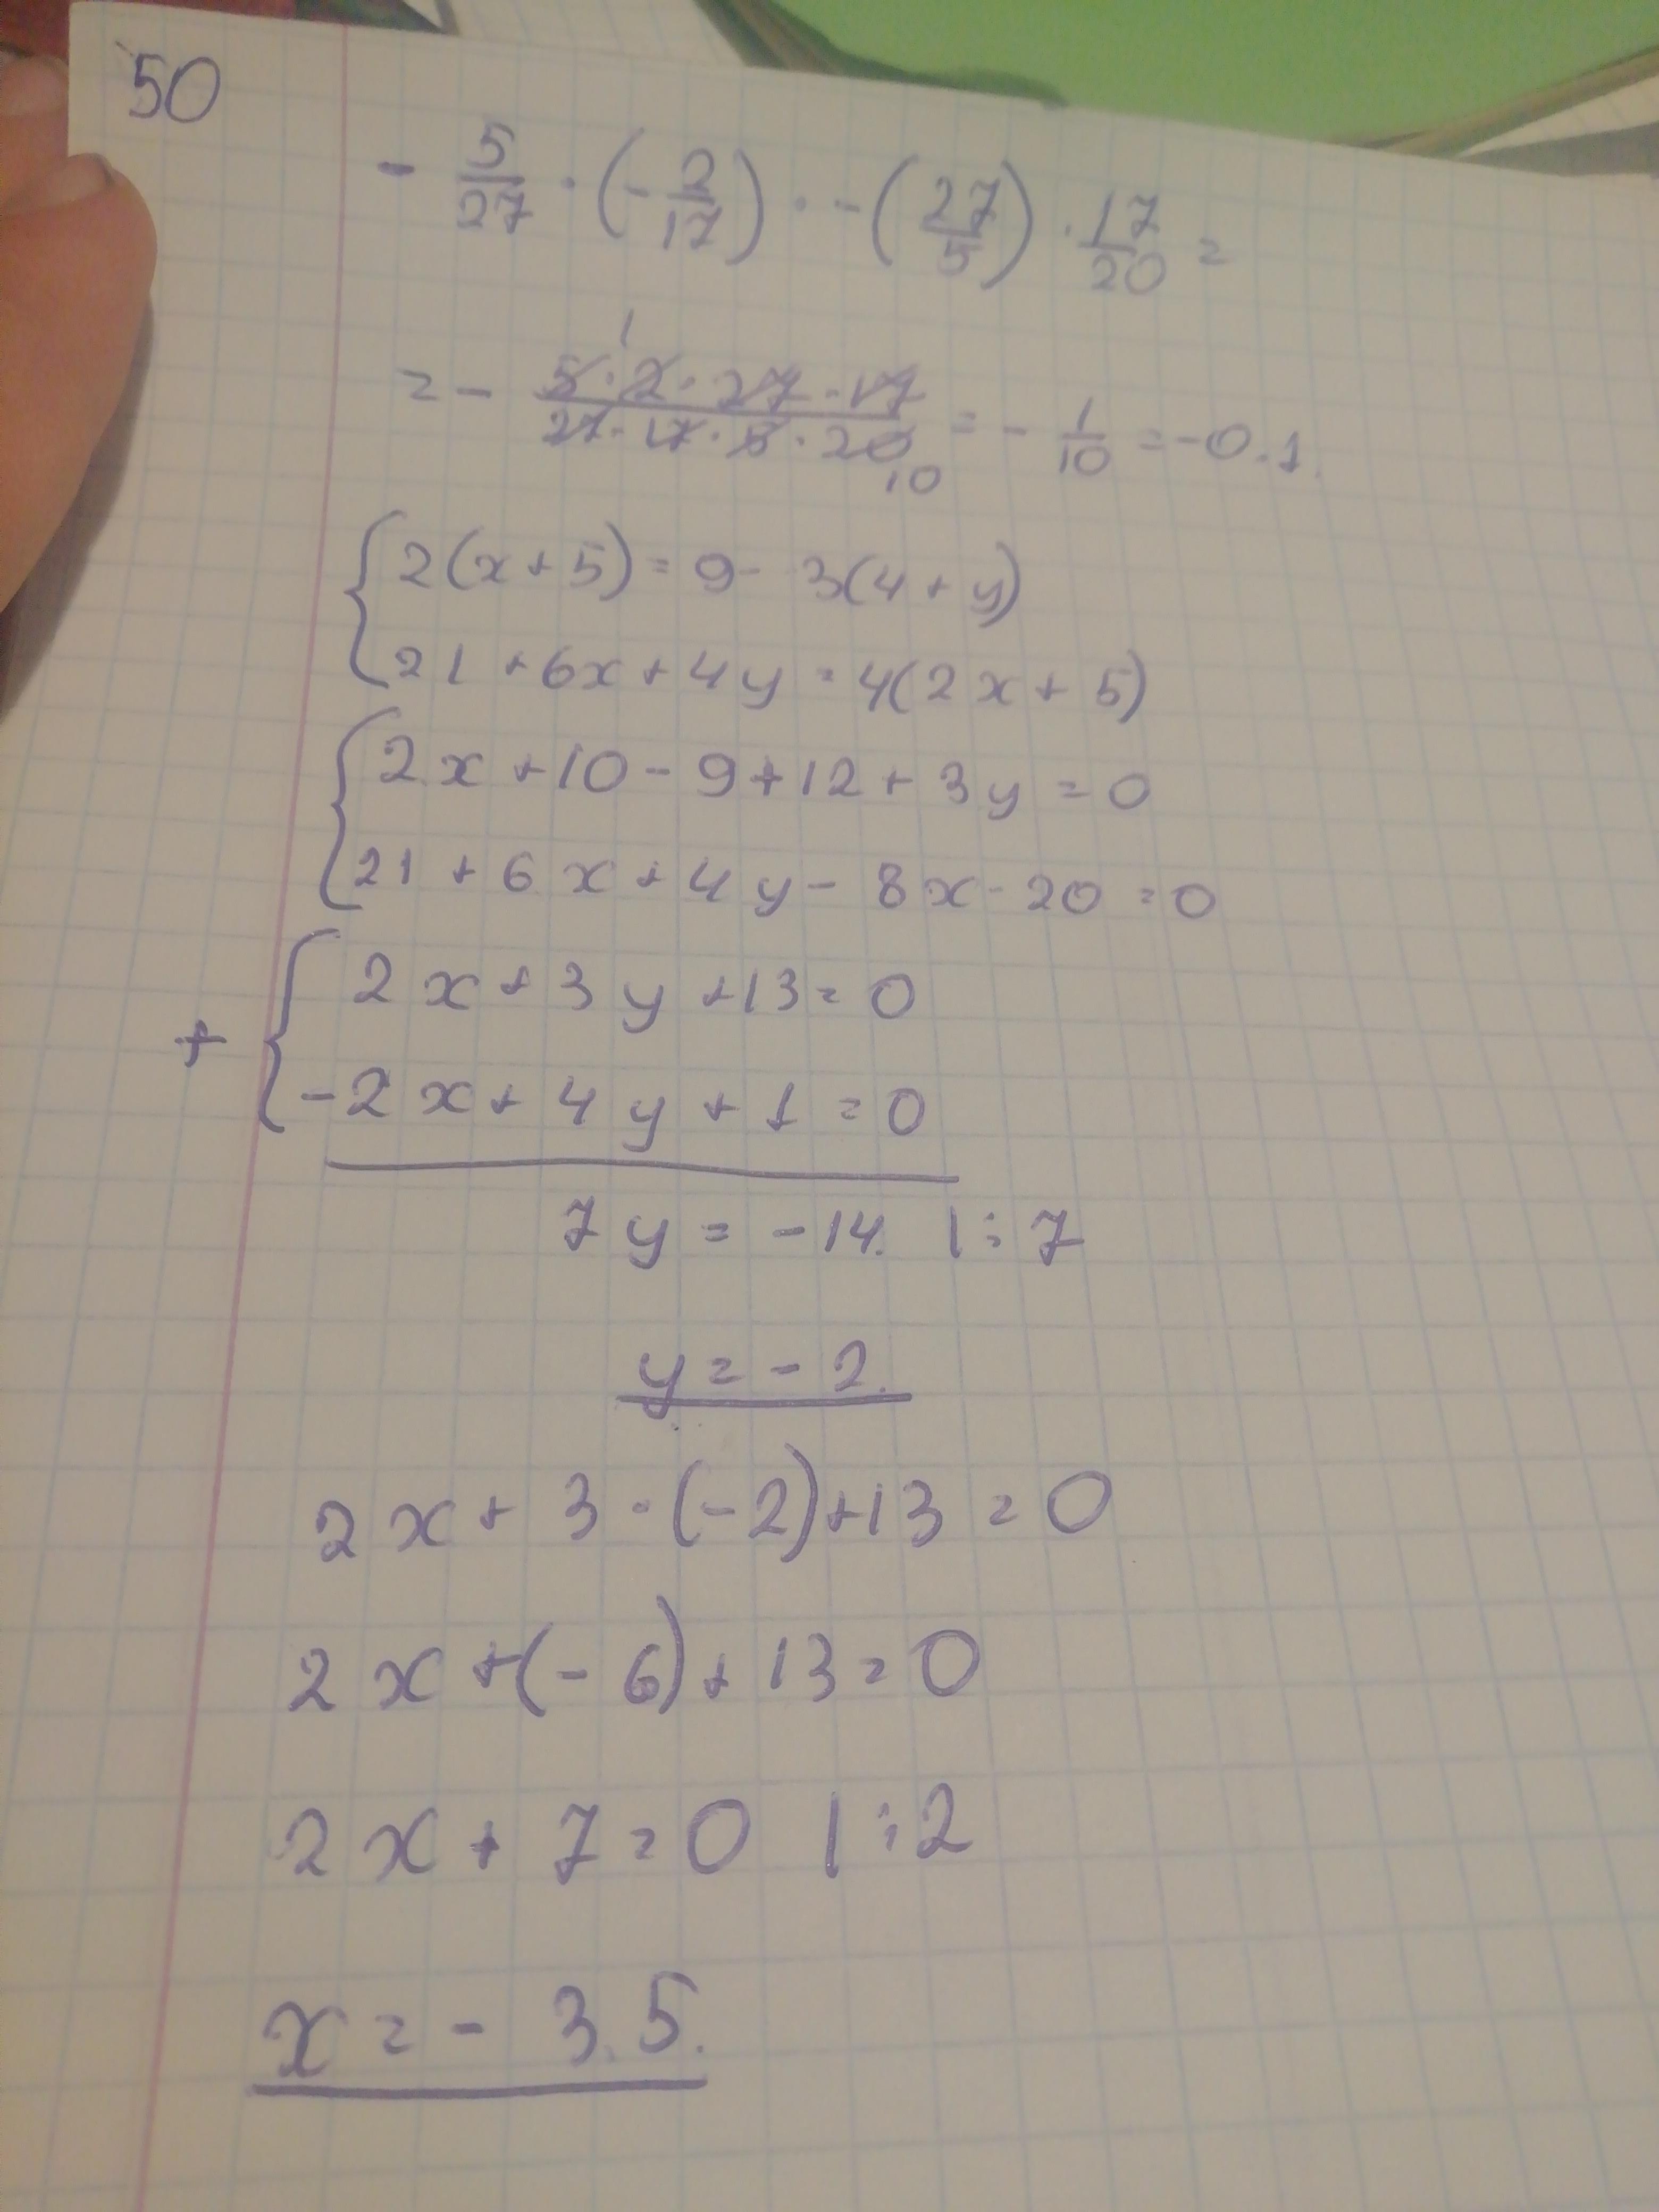 50
- 5/27 · (- 2/17) · - (27/5) · 17/20 =
= - 5·2·27·17 / 27·17·5·20 = - 1/10 = -0.1.
1
10
2(x+5) = 9 - 3(4+y)
21 + 6x + 4y = 4(2x + 5)
2x + 10 - 9 + 12 + 3y = 0
21 + 6x + 4y - 8x - 20 = 0
2x + 3y + 13 = 0
+
-2x + 4y + 1 = 0
7y = -14. | : 7
y = - 2.
2x + 3 · (-2) + 13 = 0
2x + (- 6) + 13 = 0
2x + 7 = 0 | : 2
x = - 3.5.